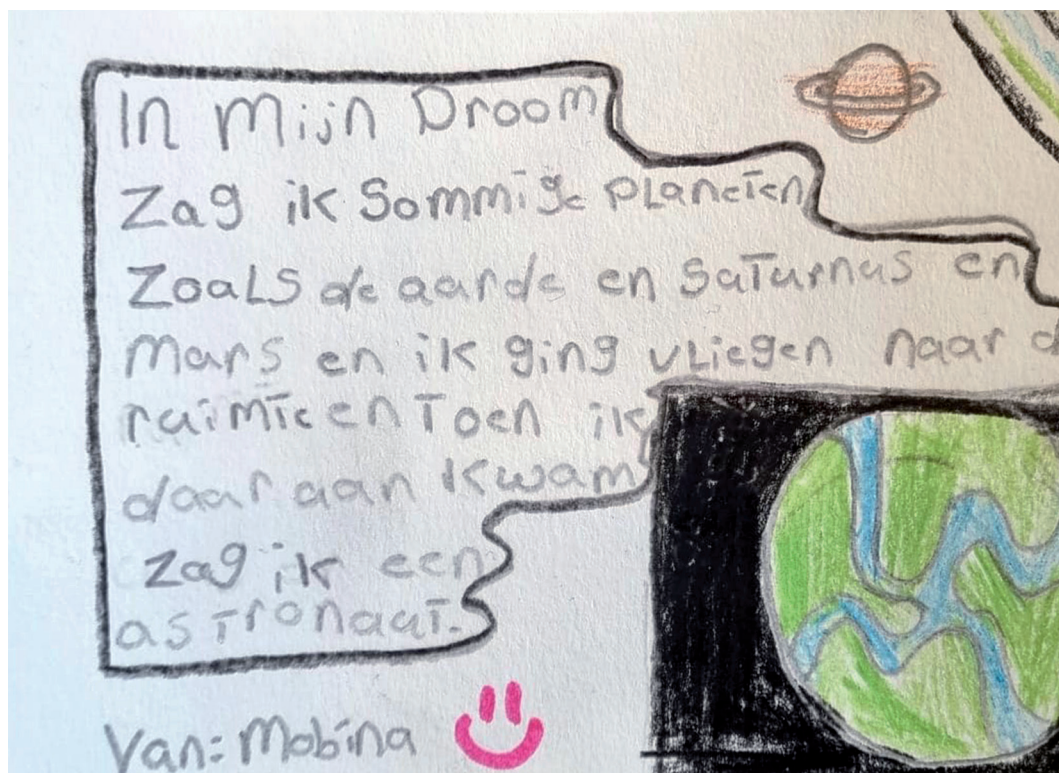 In Mijn Droom
Zag ik Sommige Planeten
Zoals de aarde en Saturnus en
Mars en ik ging vliegen naar
ruimte en Toen ik
daar aan kwam
Zag ik een
astronaat.
Van: Mobina